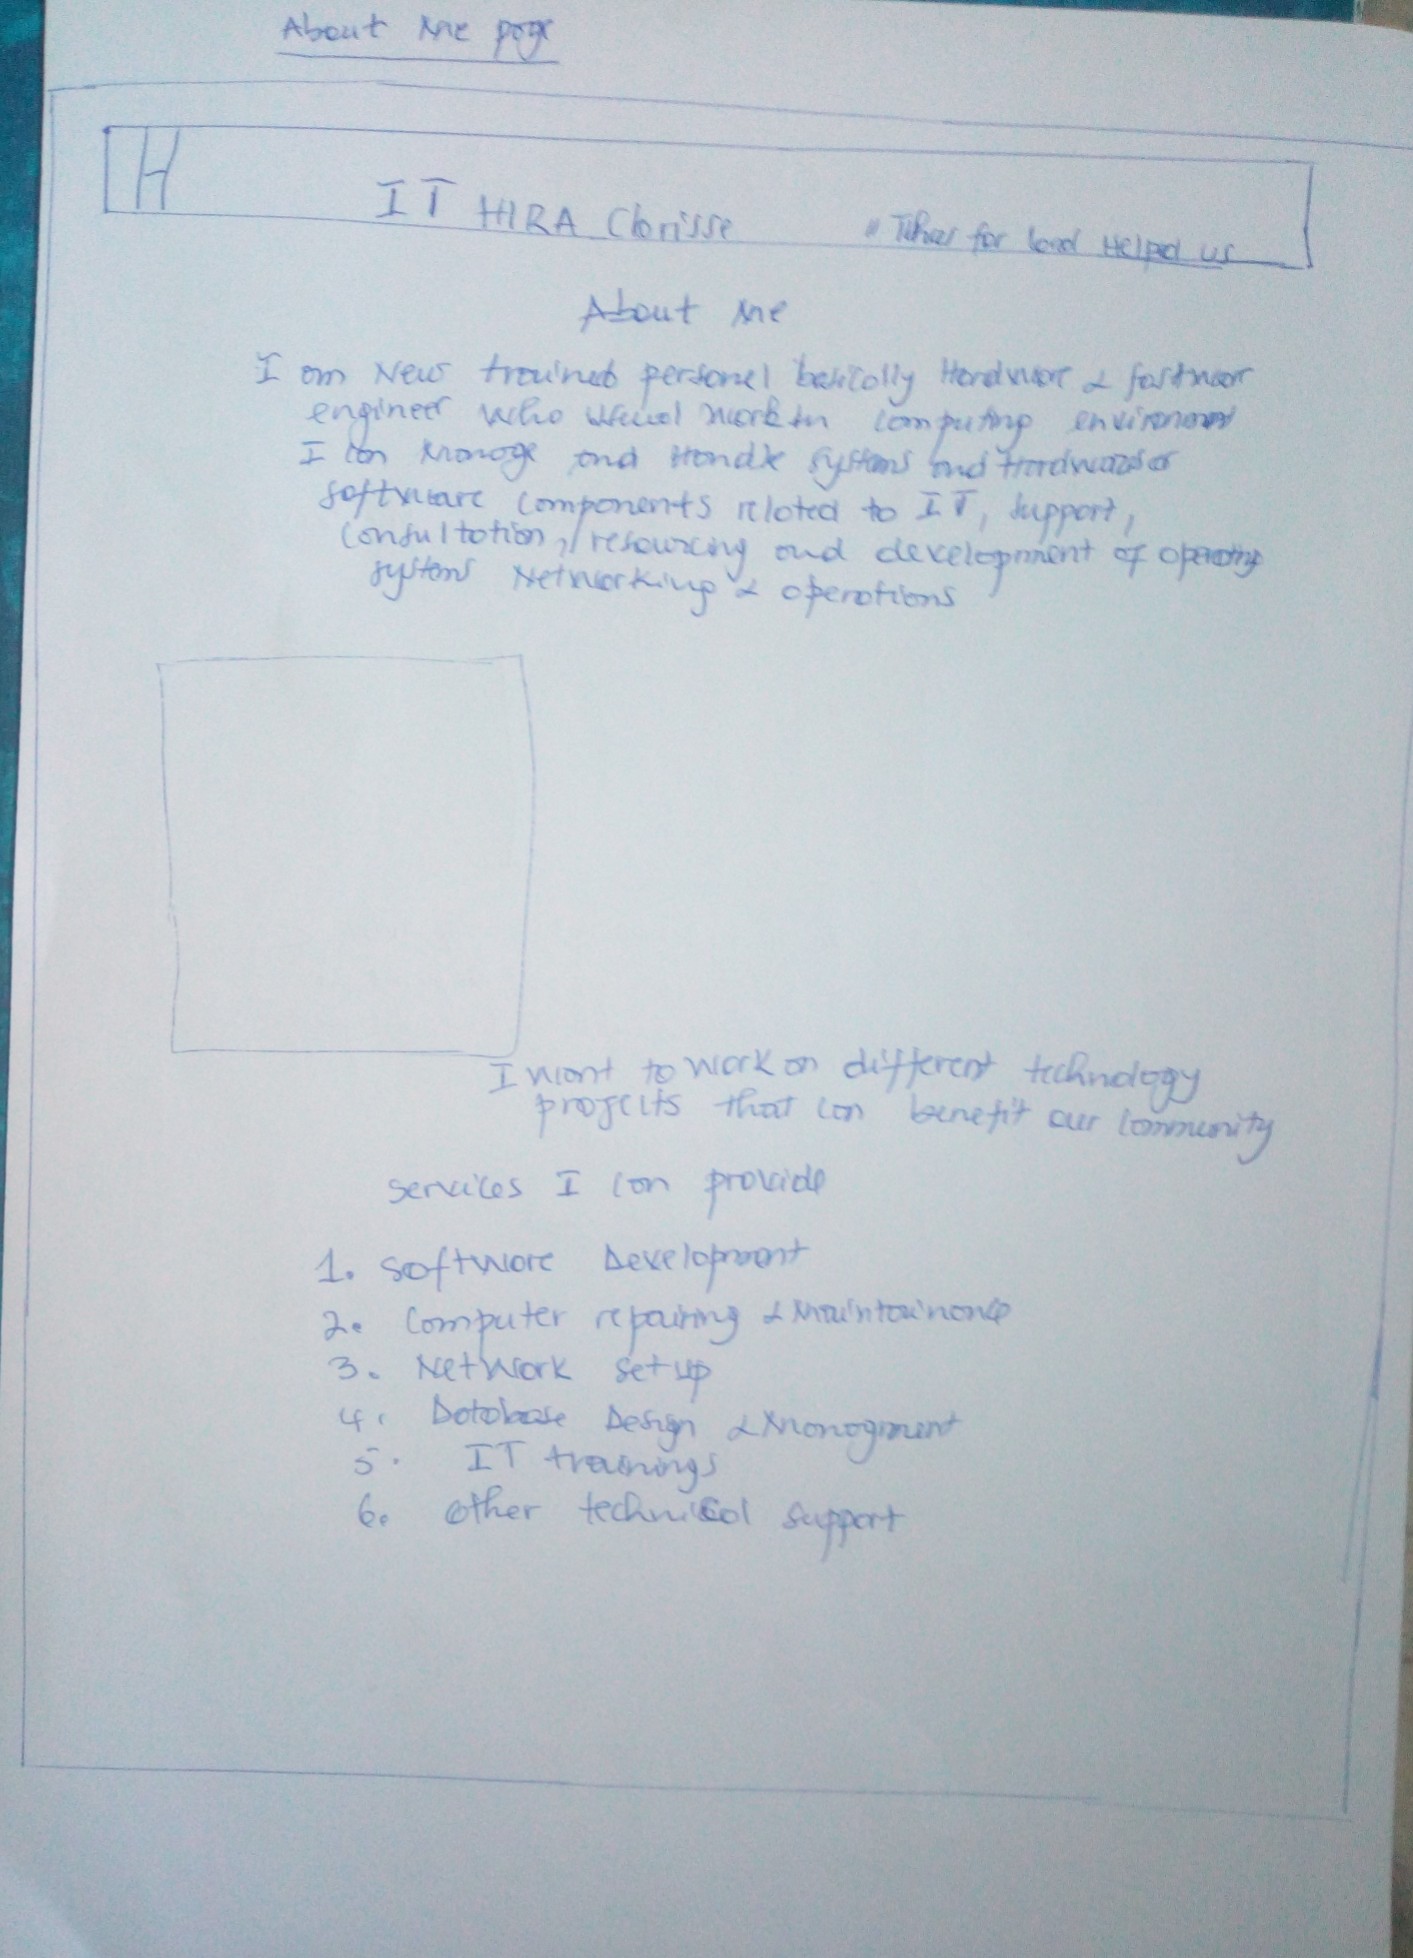 About Me page
H
IT HIRA Clarisse
for Helped us
About Me
I am New trained personel basically Hardware &
engineer who work in computing
I can Manage and Handle systems and Hardware
software components related to IT, support,
Consultation, resourcing and development of operating
systems Networking & operations
I want to work on different technology
projects that can benefit our community
services I can provide
1. software Development
2. Computer repairing & Maintainance
3. Network setup
4. Database Design & Managment
5. IT trainings
6. other technical support